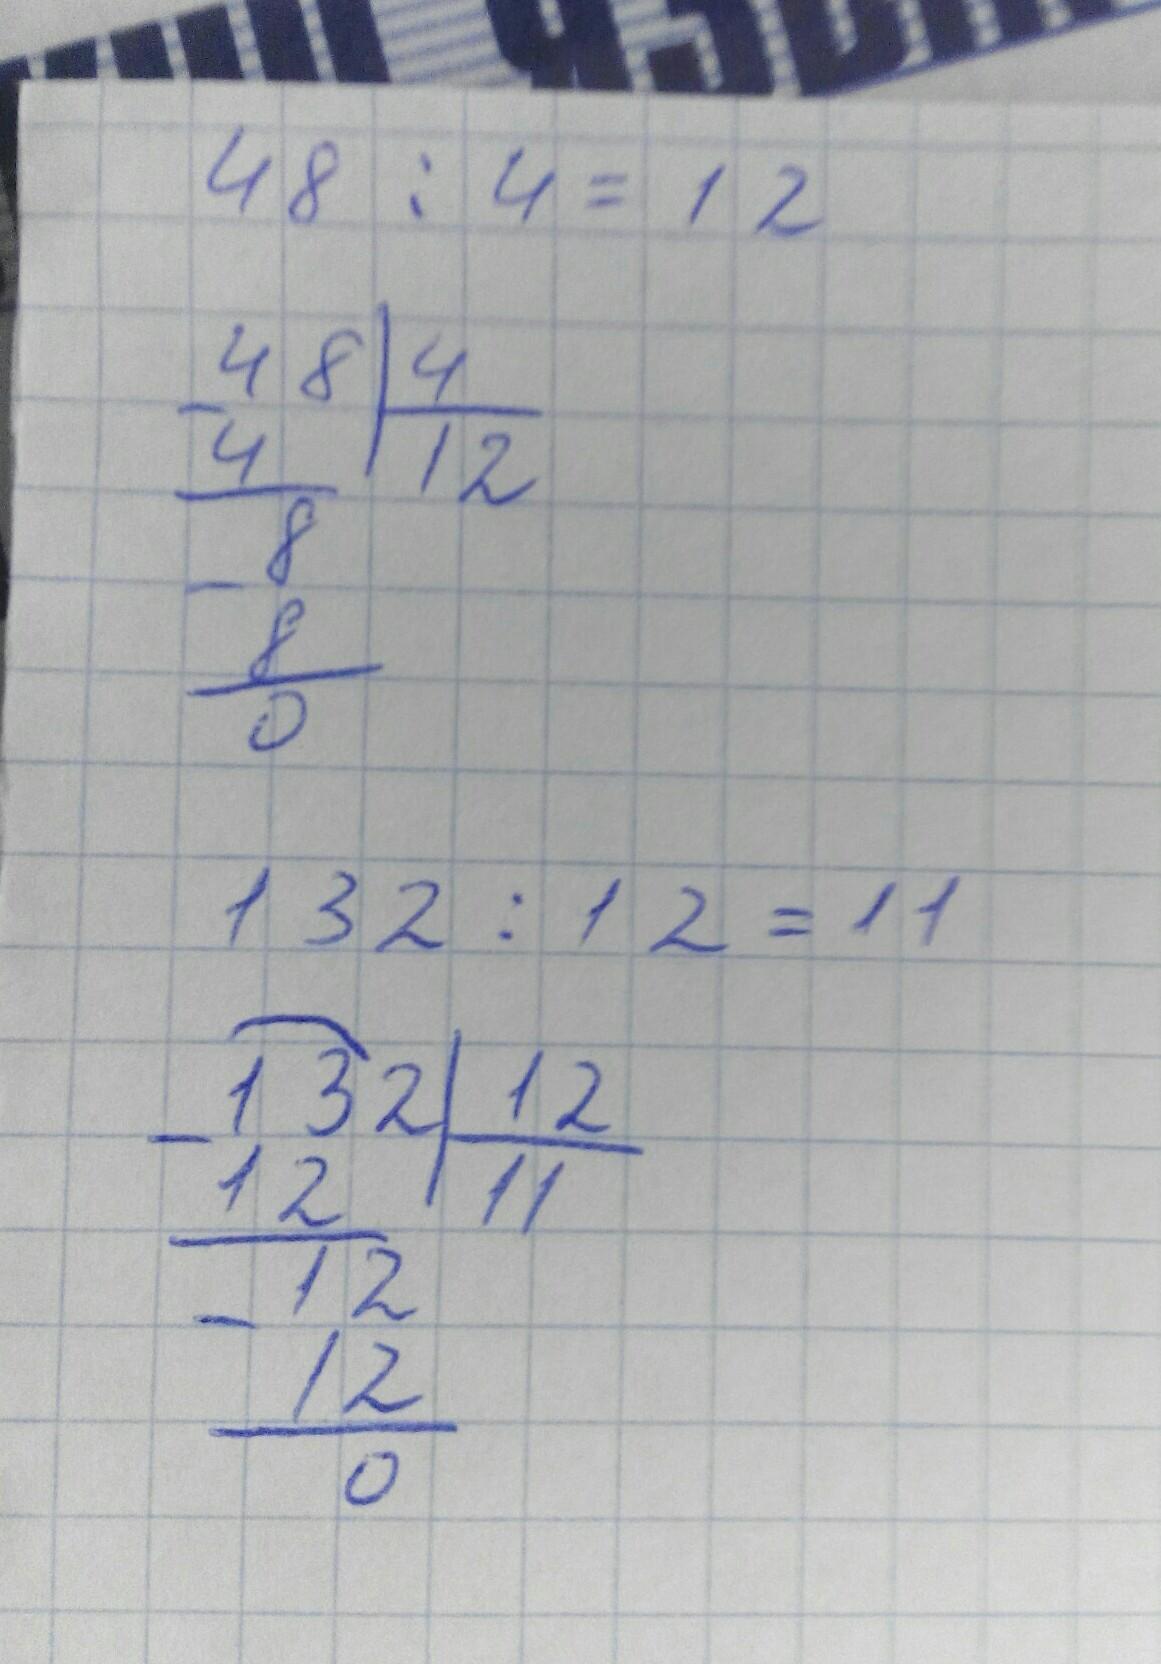 48 : 4 = 12
48 | 4
- 4 | 12
8
- 8
0
132 : 12 = 11
132 | 12
- 12 | 11
12
- 12
0